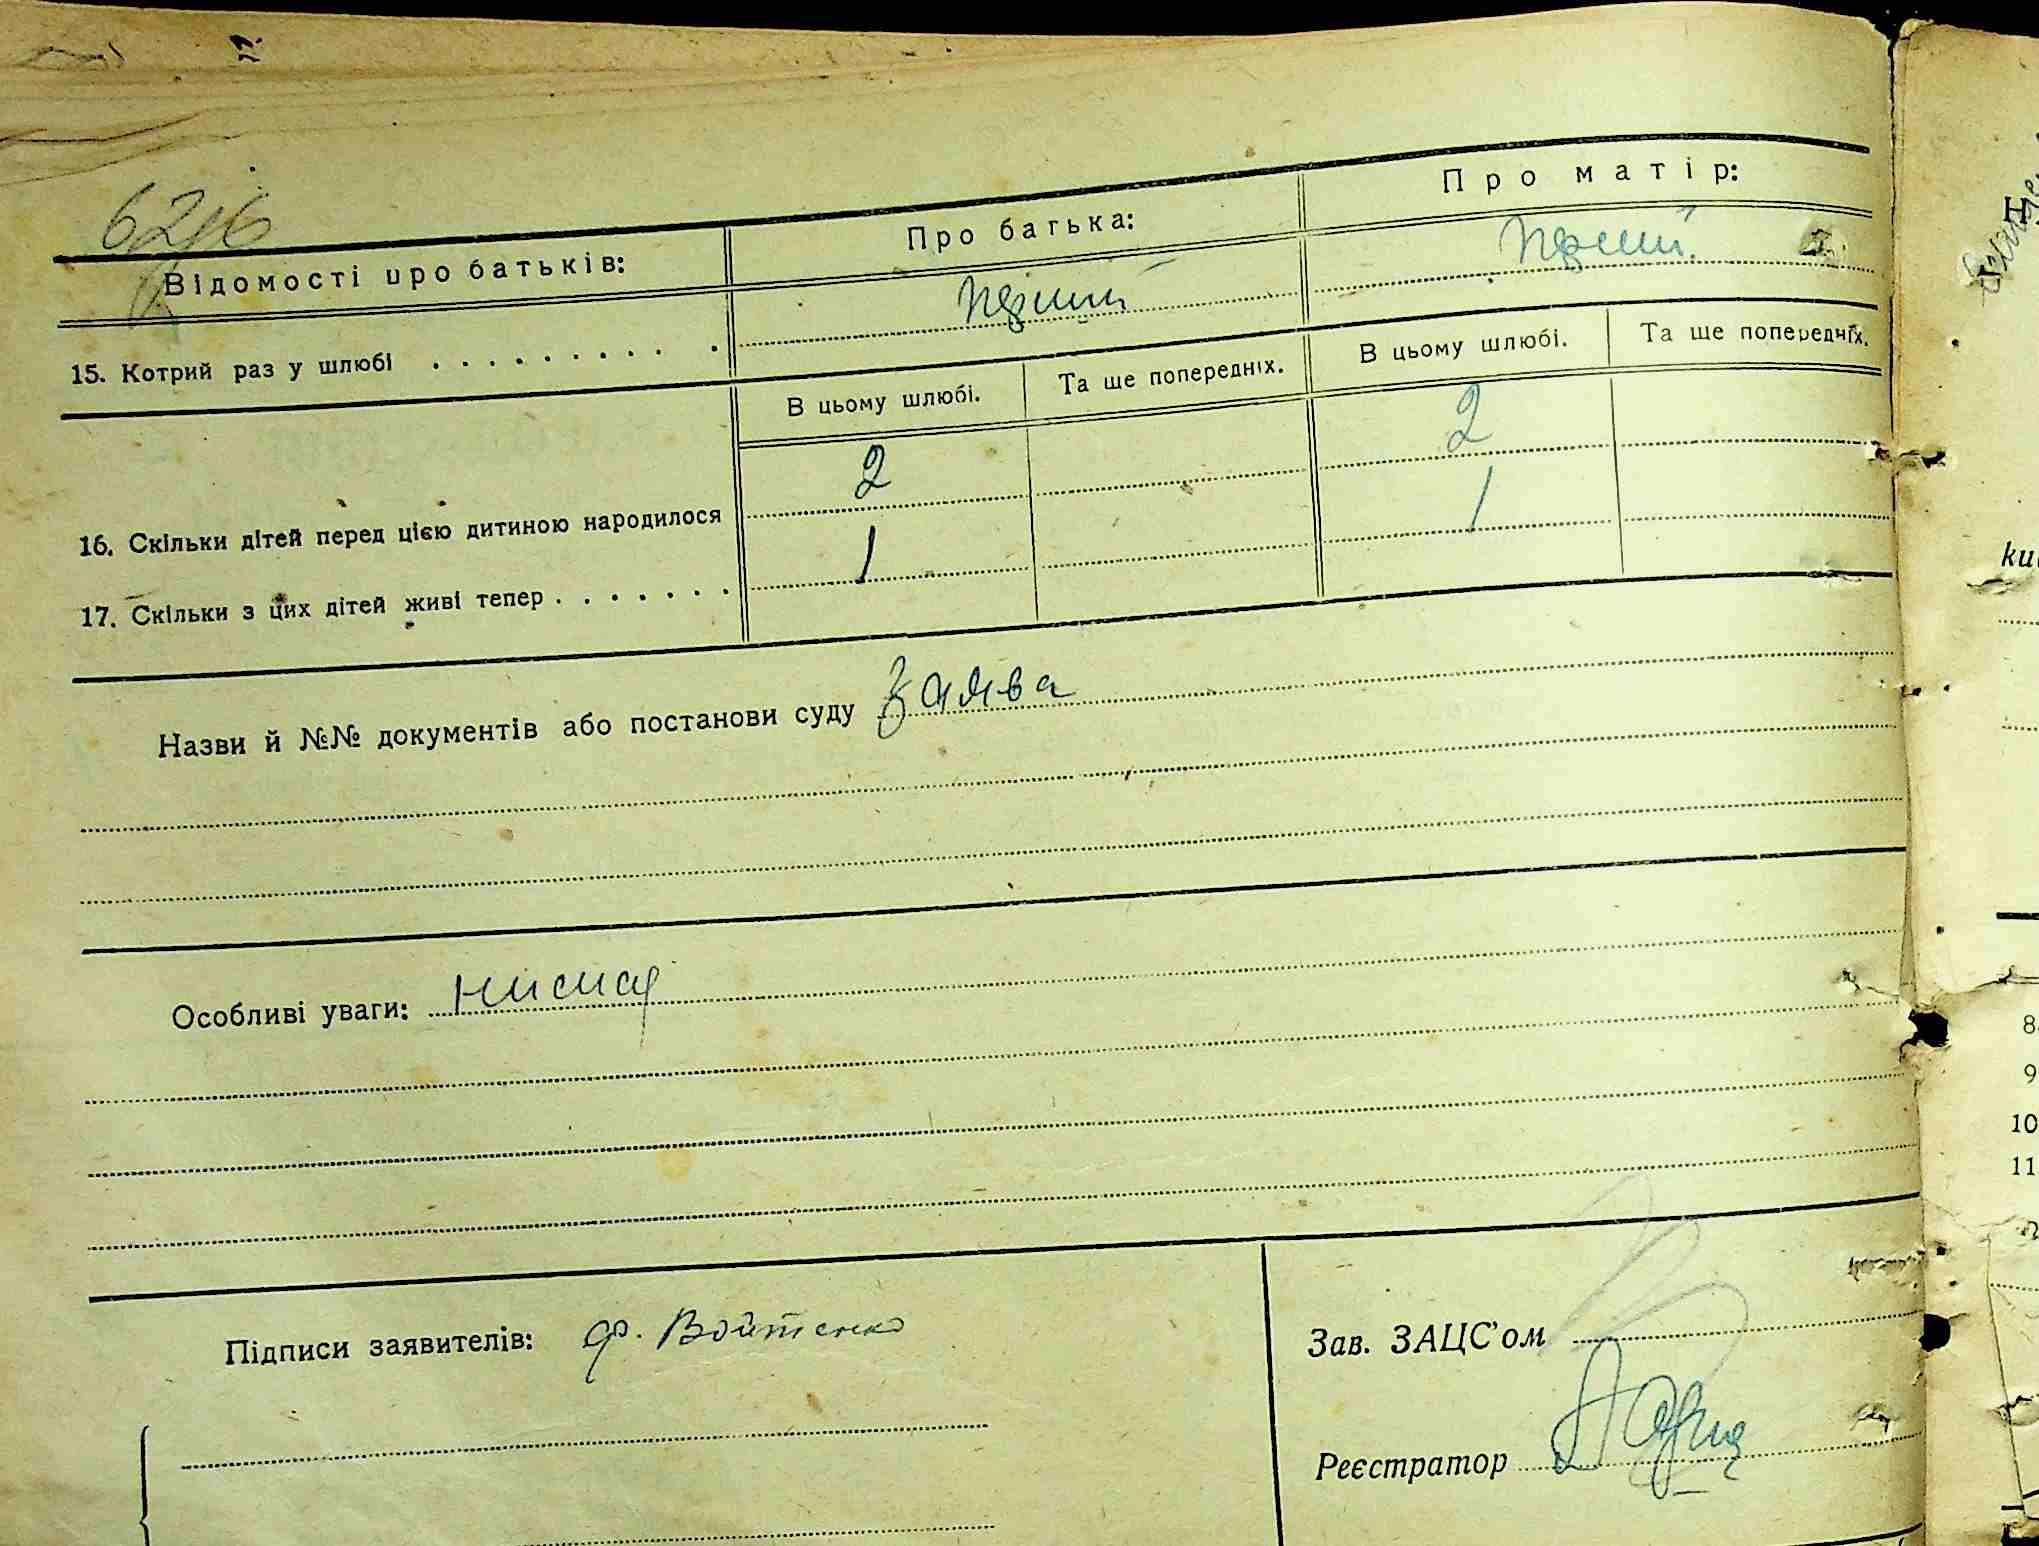 Відомості про батьків:
Про батька:
Про матір:
15. Котрий раз у шлюбі . . . . . . . . . .
перший
перший
В цьому шлюбі.
Та ще попередніх.
В цьому шлюбі.
Та ще попередніх.
16. Скільки дітей перед цією дитиною народилося
2
2
17. Скільки з цих дітей живі тепер . . . . . . .
1
1
Назви й №№ документів або постанови суду заява
Особливі уваги:
Підписи заявителів: Ф. Войтенко
Зав. ЗАЦС'ом
Реєстратор
8
9
10
11